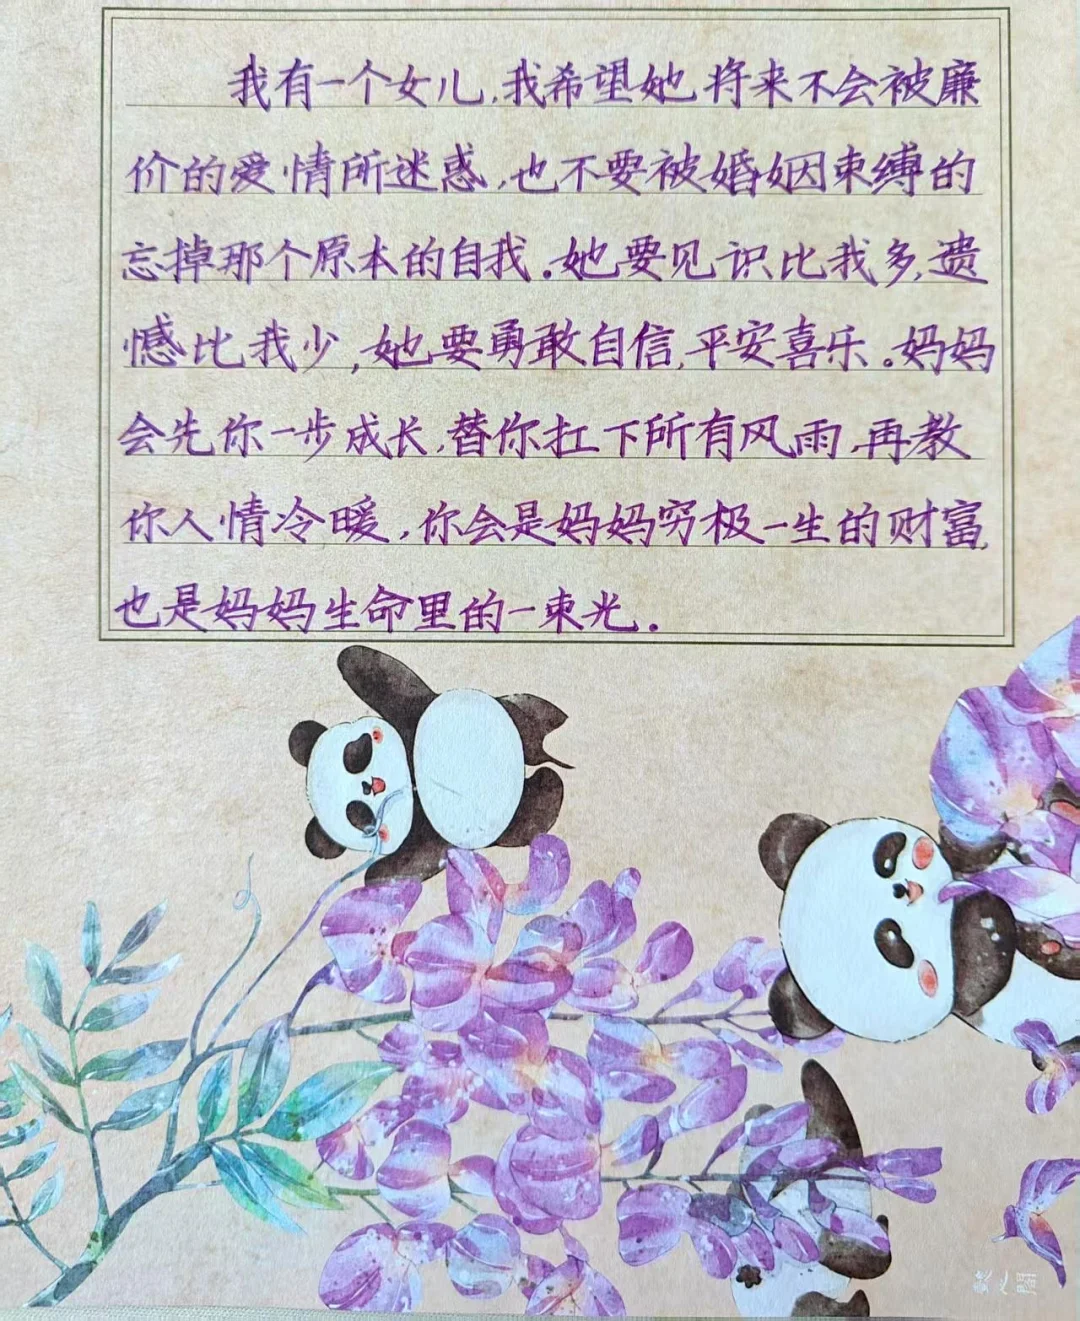 我有一个女儿,我希望她将来不会被廉
价的爱情所迷惑,也不要被婚姻束缚的
忘掉那个原本的自我。她要见识比我多,遗
憾比我少,她要勇敢自信,平安喜乐。妈妈
会先你一步成长,替你扛下所有风雨,再教
你人情冷暖,你会是妈妈穷极一生的财富,
也是妈妈生命里的一束光.